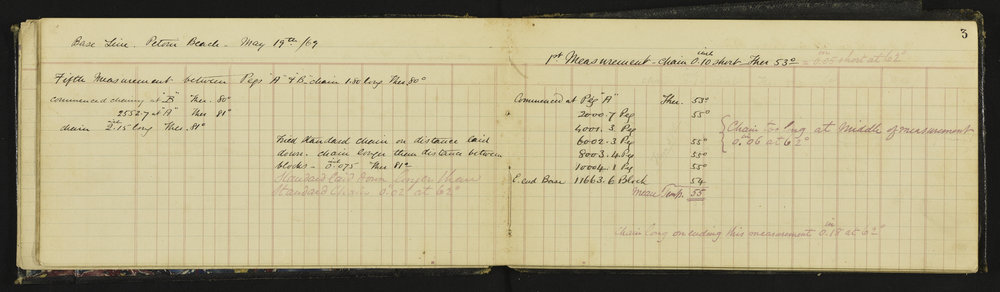 Base Line. Petone Beach - May 19th /69
Fifth Measurement between Pegs "A" & "B" chain 1.80 long Ther. 80°
commenced chaining at "B" Ther. 80°
2552.7 at "A" Ther 81°
chain 2.15 long Ther. 81°
Tried standard chain on distance laid
down. chain longer than distance between
blocks - 0.075 Ther 81°
Standard laid down longer than
Standard Chain 0.02 at 62°
3
1st Measurement - chain 0.10 short Ther 53° = 0.05 short at 62°
Commenced at Peg "A" Ther. 53°
2000.7 Peg 55°
4001.3 Peg
6002.3 Peg 55°
8003.4 Peg
10004.1 Peg
E. end Base 11663.6 Block 54
Mean Temp. 55
Chain too long at Middle of measurement
0.06 at 62°
Chain long on ending this measurement 0.18 at 62°